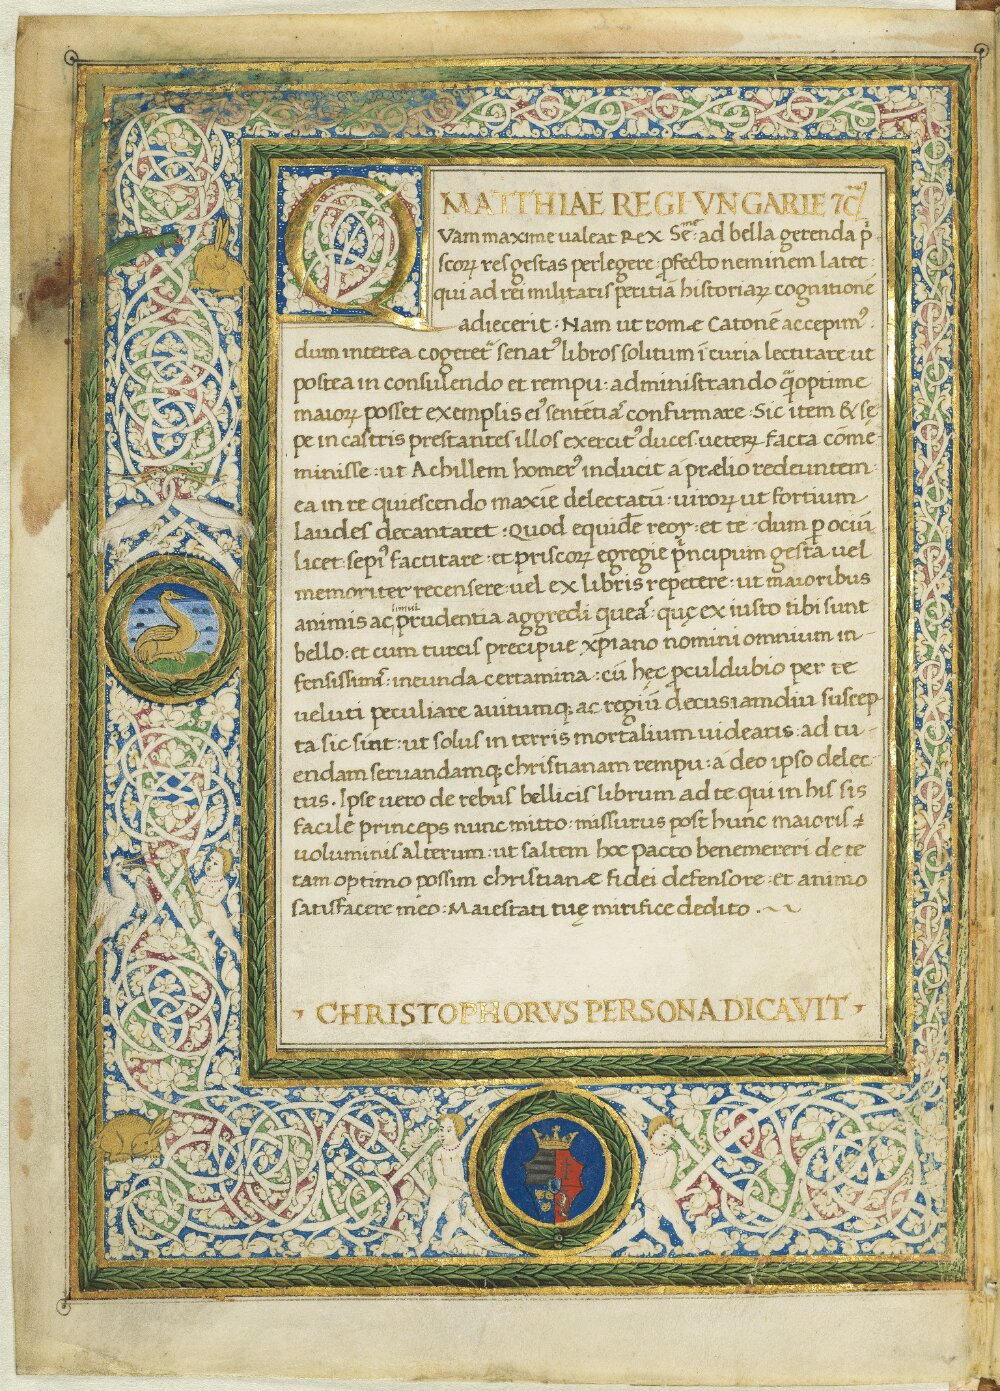 MATTHIAE REGI VNGARIE 7cͣ
QVam maxime ualeat Rex Seͬ· ad bella gerenda p̄
scoꝝ res gestas perlegere ꝓfecto neminem latet·
qui ad rei militaris peritiā historiaꝝ cognitionē
adiecerit· Nam ut romæ Catonē accepimꝰ·
dum interea cogeret᷑ senatꝰ libros solitum ī curia lectitare ut
postea in consulendo et rempu· administrando q̈optime
maioꝝ posset exemplis eiꝰ sentētia᷑ confirmare· Sic item & sę
pe in castris prestantes illos exercitꝰ duces· ueteꝝ facta cōme
minisse· ut Achillem homerꝰ inducit a prælio redeuntem·
ea in re quiescendo maxīe delectatū· uiroꝝ ut fortium
laudes decantaret· Quod equidē reor· et te· dum ꝑ ociū
licet· sepi᷑ factitare· et priscoꝝ egregie p̄ncipum gesta uel
memoriter recensere· uel ex libris repetere· ut maioribus
animis ac simul prudentia aggredi quea᷑· quę ex iusto tibi sunt
bello· et cum turcis precipue xp̄iano nomini omnium in-
fensissimi᷑· ineunda certamina· cū hęc ꝓculdubio per te
ueluti peculiare auitumqꝫ ac regiū decus iamdiu suscep
ta sic sint· ut solus in terris mortalium uidearis· ad tu-
endam seruandamqꝫ christianam rempu· a deo ipso delec-
tus. Ipse uero de rebus bellicis librum ad te qui in his sis
facile princeps nunc mitto· missurus post hunc maioris
uoluminis alterum· ut saltem hoc pacto benemereri de te
tam optimo possim christianæ fidei defensore· et animo
satisfacere meo· Maiestati tuę mirifice dedito·
CHRISTOPHORVS PERSONA DICAVIT